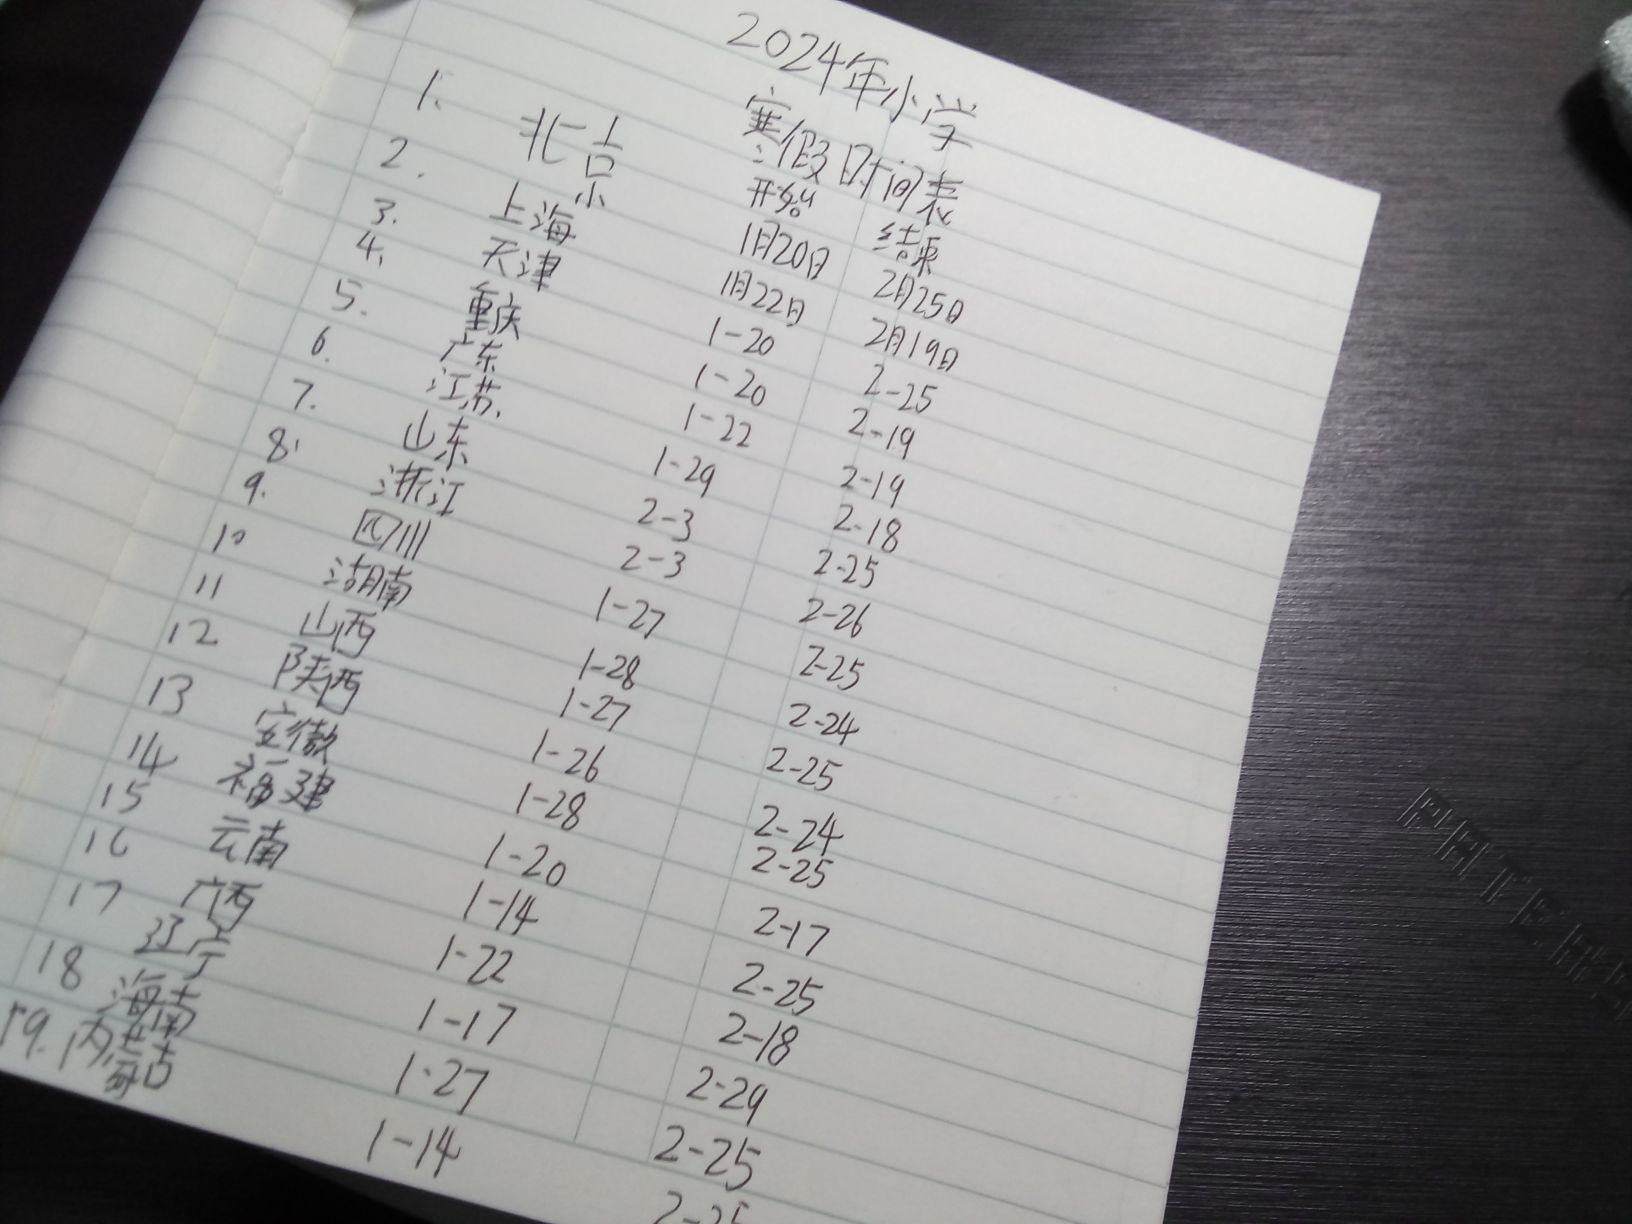 2024年小学
寒假时间表
开始 结束
1. 北京 1月20日 2月25日
2. 上海 1月22日 2月19日
3. 天津 1-20 2-25
4. 重庆 1-20 2-19
5. 广东 1-22 2-19
6. 江苏 1-29 2-18
7. 山东 2-3 2-25
8. 浙江 2-3 2-26
9. 四川 1-27 2-25
10 湖南 1-28 2-24
11 山西 1-27 2-25
12 陕西 1-26 2-24
13 安徽 1-28 2-25
14 福建 1-20 2-17
15 云南 1-14 2-25
16 广西 1-22 2-18
17 辽宁 1-17 2-29
18 海南 1-27 2-25
19. 内蒙古 1-14 2-25